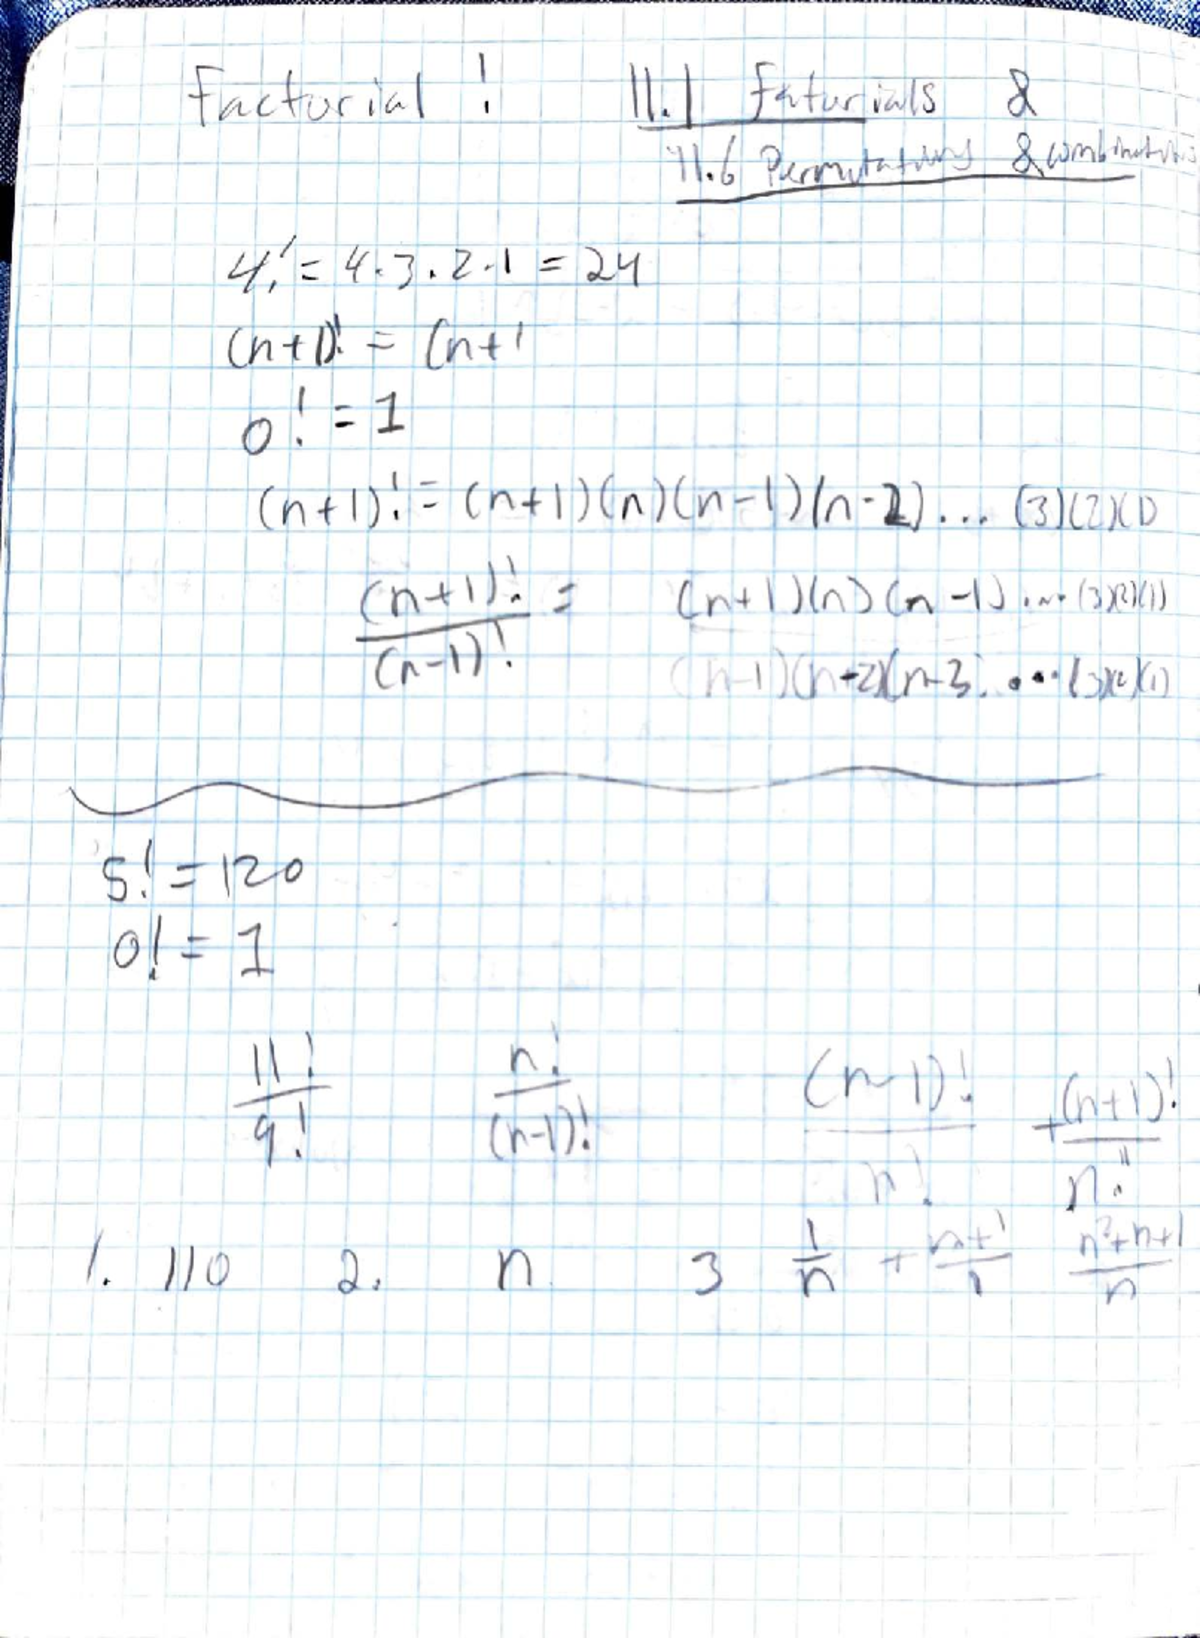 Factorial !
11.1 Fatorials &
11.6 Permutations & combinations
4! = 4·3·2·1 = 24
(n+1)! = (n+1
0! = 1
(n+1)! = (n+1)(n)(n-1)(n-2)... (3)(2)(1)
(n+1)! / (n-1)! = (n+1)(n)(n-1)...(3)(2)(1)
(n-1)(n-2)(n-3)...(3)(2)(1)
5! = 120
0! = 1
11!/9! n!/(n-1)! (n-1)!/n! + (n+1)!/n!
1. 110 2. n 3 1/n + n+1/1 n²+n+1/n